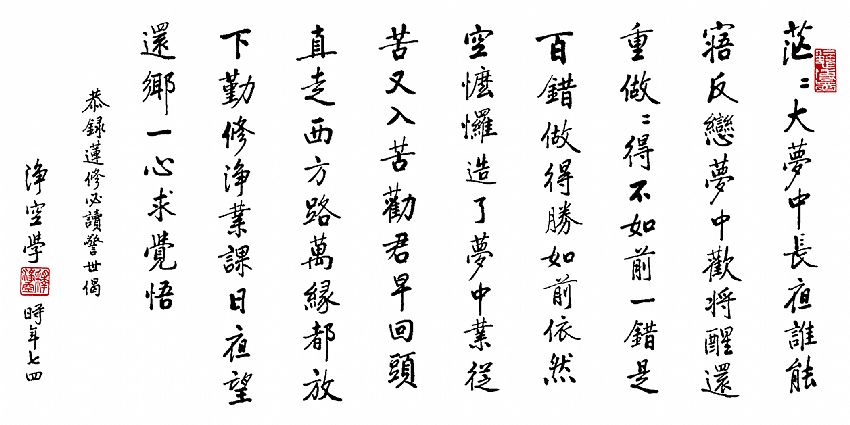 茫々大夢中長夜誰能
寤反戀夢中歡將醒還
重做々得不如前一錯是
百錯做得勝如前依然
空懡㦬造了夢中業從
苦又入苦勸君早回頭
直走西方路萬緣都放
下勤修淨業課日夜望
還鄉一心求覺悟
恭錄蓮修必讀警世偈
淨空學
時年七四